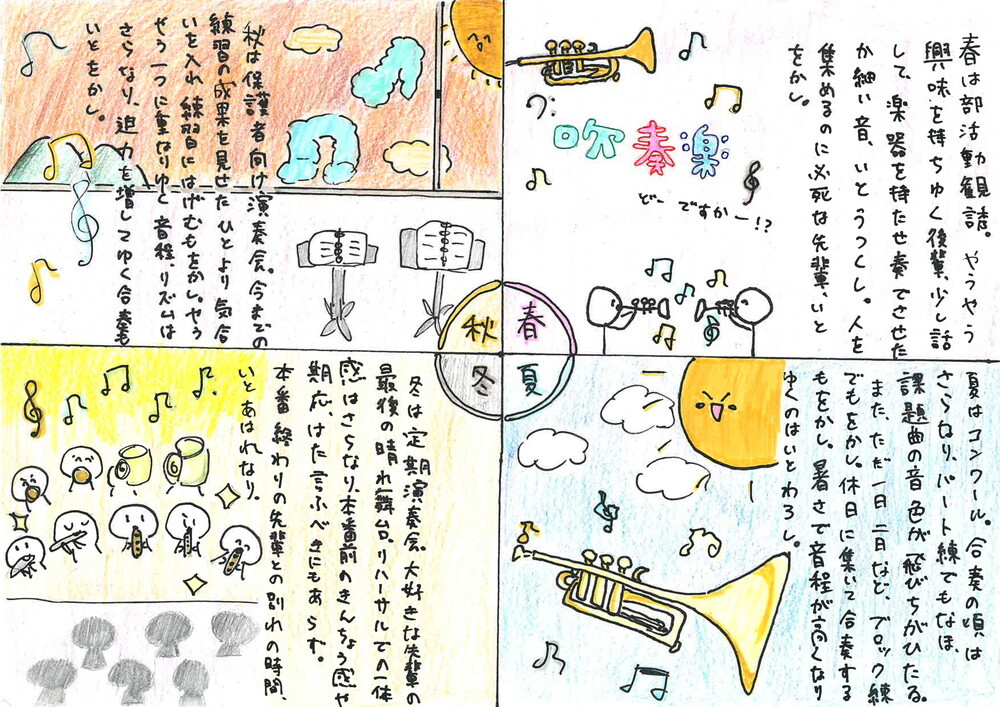 春は部活動観誘。やうやう
興味を持ちゆく後輩、少し話
して、楽器を持たせ奏でさせた
か細い音、いとうつくし。人を
集めるのに必死な先輩、いと
をかし。
吹奏楽
どーですかー!?
春
夏
秋
冬
夏はコンクール。合奏の頃は
さらなり、パート練でもなほ、
課題曲の音色が飛びちがひたる。
また、ただ一日二日など、ブロック練
でもをかし。休日に集いて合奏する
もをかし。暑さで音程が高くなり
ゆくのはいとわろし。
秋は保護者向け演奏会。今までの
練習の成果を見せたひとより気合
いを入れ練習にはげむもをかし。やう
やう一つに重なりゆく音程、リズムは
さらなり、迫力を増してゆく合奏も
いとをかし。
冬は定期演奏会。大好きな先輩の
最後の晴れ舞台。リハーサルでの一体
感はさらなり、本番前のきんちょう感や
期応、はた言ふべきにもあらず。
本番終わりの先輩との別れの時間、
いとあはれなり。